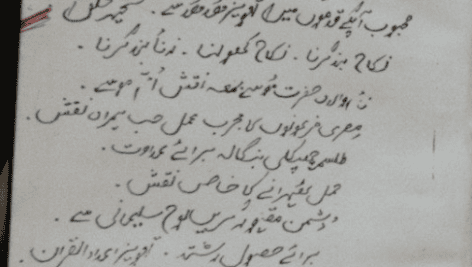 محبوب آپکے قدموں میں۔ تعویز حق حق سے۔ تسخیر خلق
نکاح بند کرنا۔ نکاح کھولنا۔ زنا بند کرنا۔
اولاد حضرت موسے بمعہ نقش ام موسے۔
مصری فرعونوں کا مجرب عمل حب ہمراہ نقش۔
طلسم چھپکلی بنگالہ برائے عداوت۔
حمل ٹھہرانے کا خاص نقش۔
دشمن مقہور سریں لوح سلیمانی سے۔
برائے حصول رشتہ۔ تعویز اعداد القران۔